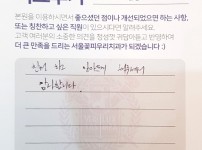 본원을 이용하시면서 좋으셨던 점이나 개선되었으면 하는 사항,
또는 칭찬하고 싶은 직원이 있으시다면 알려주세요.
고객 여러분의 소중한 의견을 정성껏 귀담아듣고 반영하여
더 큰 만족을 드리는 서울꽃피우리치과가 되겠습니다 :)
해주셔서
감사합니다.